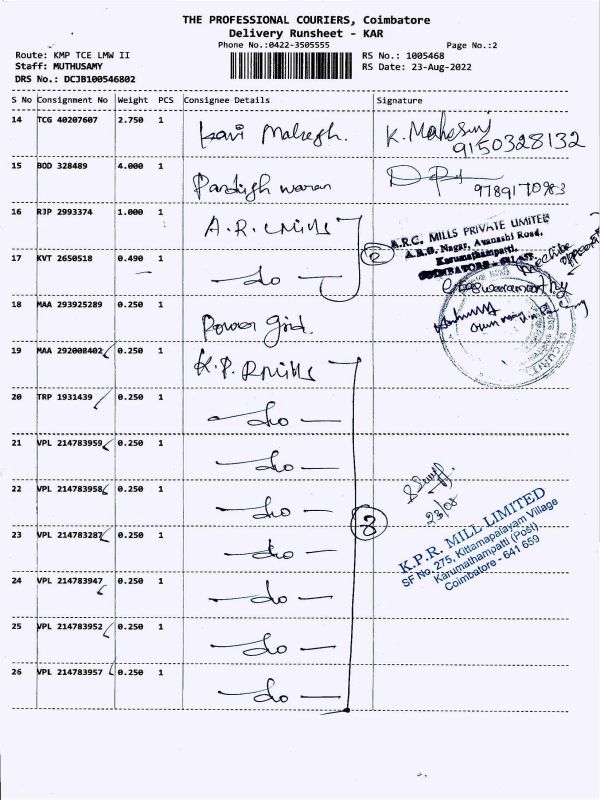 THE PROFESSIONAL COURIERS, Coimbatore
Delivery Runsheet - KAR
Phone No.:0422-3505555 Page No.:2
Route: KMP TCE LMW II RS No.: 1005468
Staff: MUTHUSAMY RS Date: 23-Aug-2022
DRS No.: DCJB100546802
S No Consignment No Weight PCS Consignee Details Signature
14 TCG 40207607 2.750 1 Kavi Mahesh. K. Mahesh
9150328132
15 BOD 328489 4.000 1
16 RJP 2993374 1.000 1 A.R.C Mills
A.R.C. MILLS PRIVATE LIMITED
A.R.G. Nagar, Avanashi Road,
Karumathampatti,
17 KVT 2650518 0.490 1 do
18 MAA 293925289 0.250 1 Power grid
19 MAA 292008402 0.250 1 K.P.R Mills
20 TRP 1931439 0.250 1 do
21 VPL 214783959 0.250 1 do
22 VPL 214783958 0.250 1 do
23/08
23 VPL 214783287 0.250 1 do
K.P.R. MILL LIMITED
SF No. 275, Kittampalayam Village
Karumathampatti (Post)
Coimbatore - 641 659
24 VPL 214783947 0.250 1 do
25 VPL 214783952 0.250 1 do
26 VPL 214783957 0.250 1 do
8